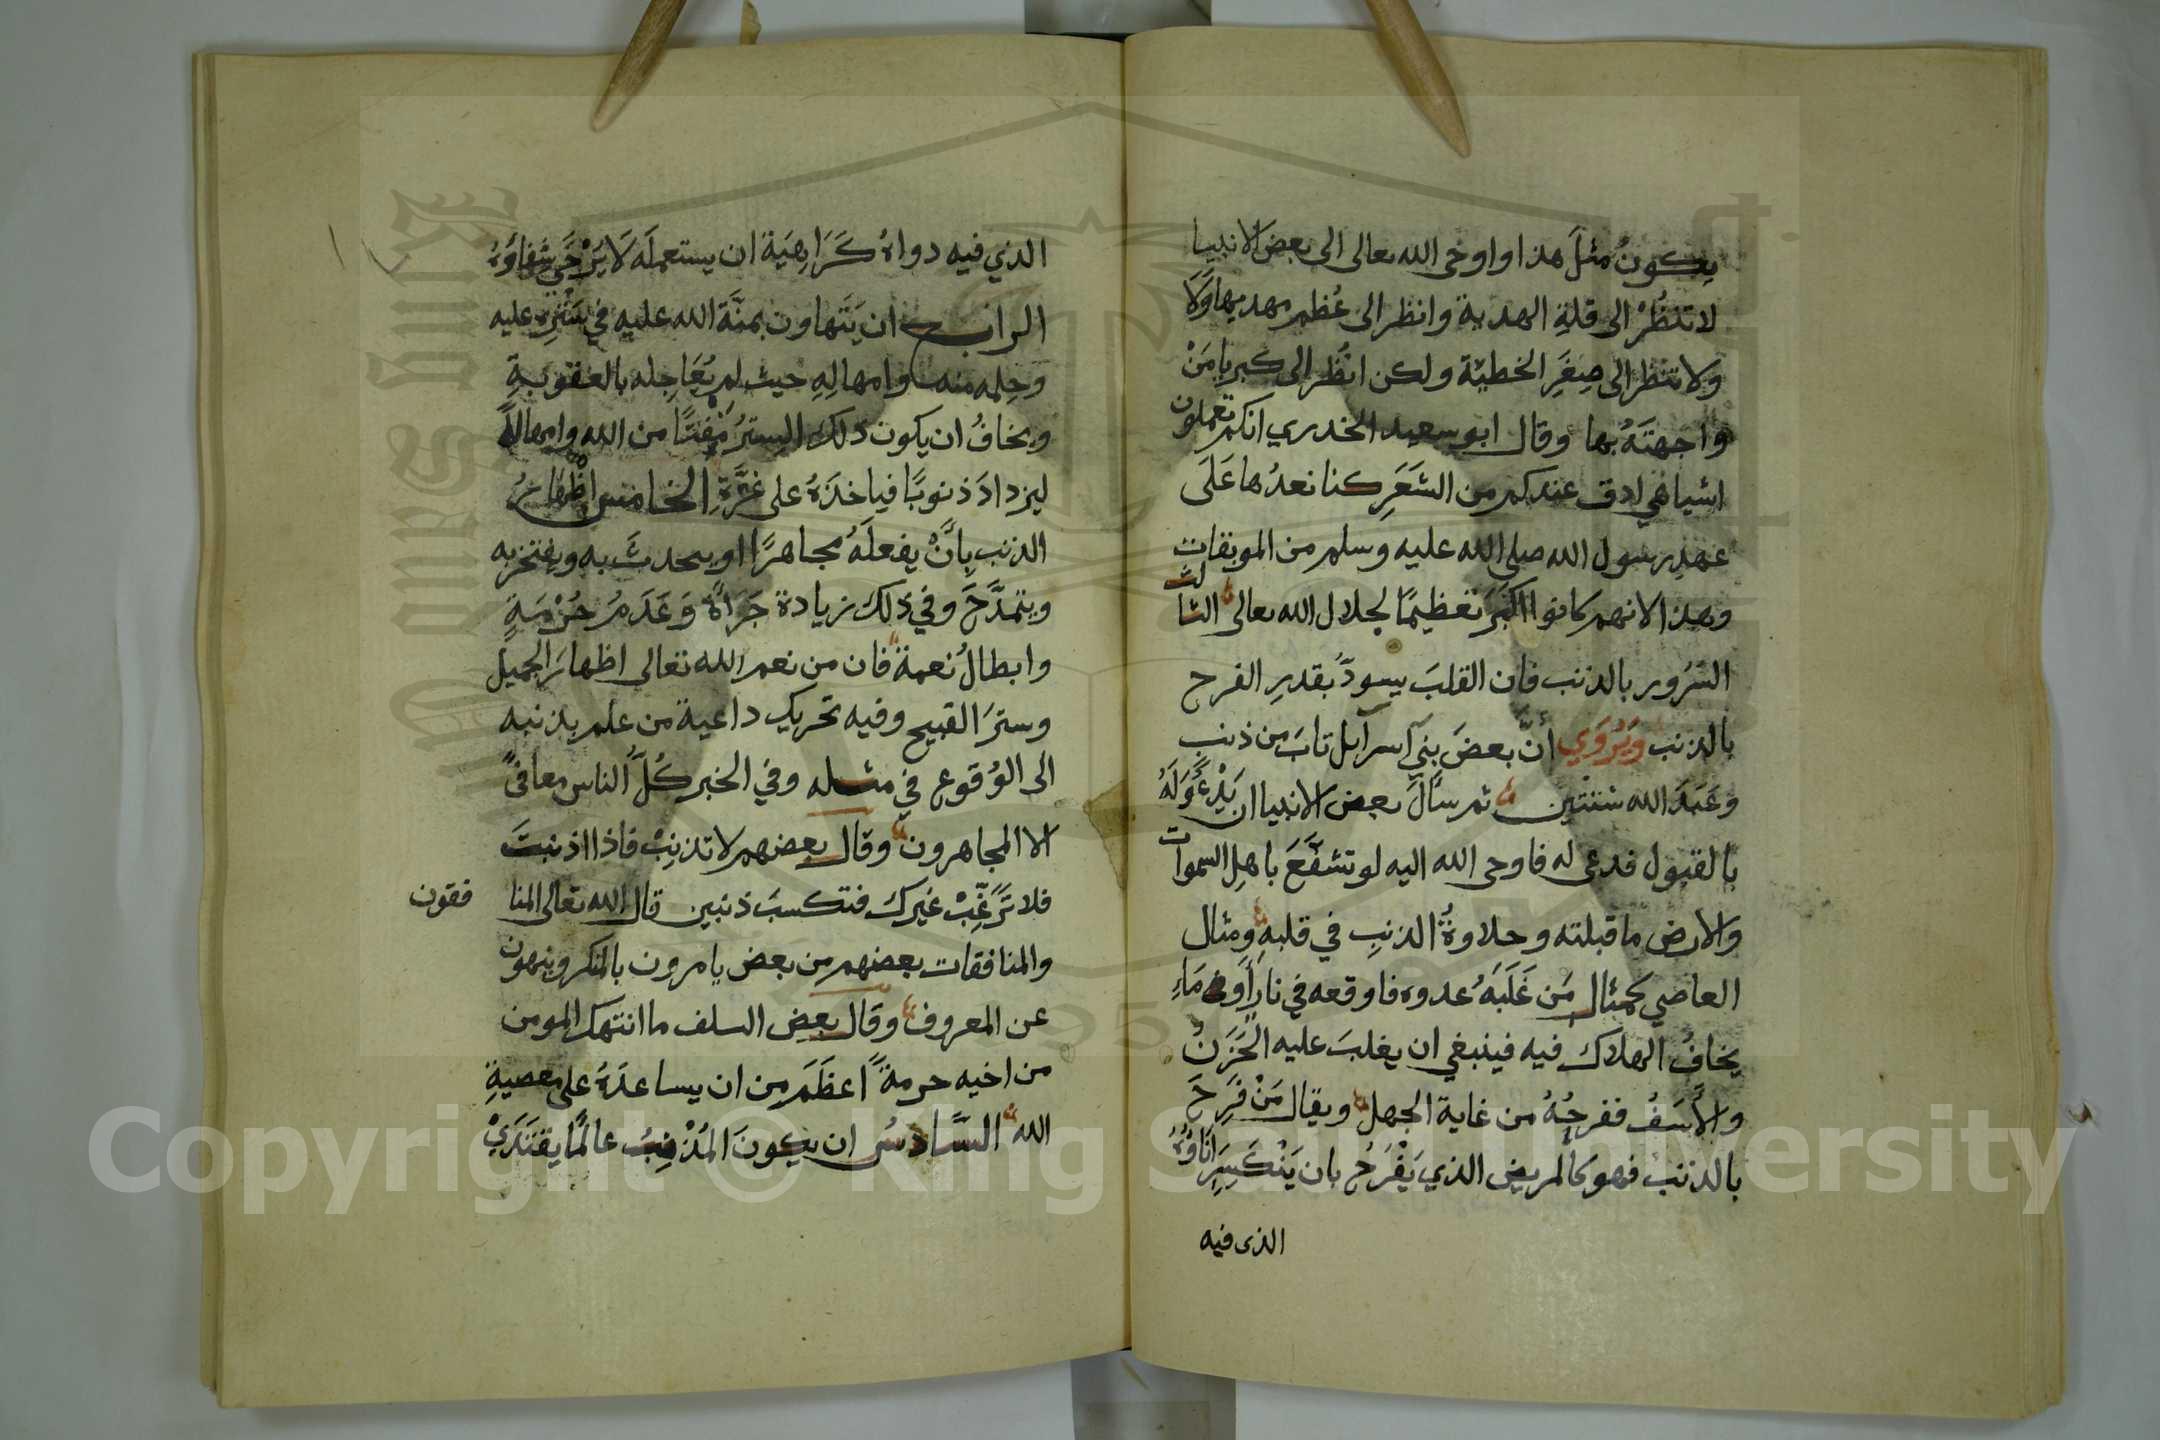 يكونُ مثلَ هذا واوحى الله تعالى الى بعض الانبيا
لا تنظُرْ الى قلةِ الهدية وانظر الى عُظم مهديها وَلَا
ولا تنظر الى صِغَرِ الخطيّة ولكن انظُر الى كبريا مَنْ
واجهتَهُ بها وقال ابو سعيد الخدري انكم تعملون
اشيا هي ادق عندكم من الشَعَرِ كنا نعدُها عَلَى
عهدِ رسول الله صلى الله عليه وسلم من الموبقات
وهذا لانهم كانوا اكبَرَ تعظيمًا لجلال الله تعالى الثالث
السُرُور بالذنب فان القلبَ يسودّ بقدرِ الفرح
بالذنب وَيُرْوَي أنّ بعضَ بني آسرآيل تابَ من ذنبٍ
وعَبَدَ الله سنتين ثم سأَلَ بعض الانبيا ان يَدْعُوَ لَهُ
بالقبول فدعى له فاوحى الله اليه لو تشفّعَ باهلِ السموات
والارض ما قبلته وحلاوةُ الذنبِ في قلبه ومثال
العاصي كمثال مَن غَلَبَهُ عدوه فاوقعه في نارٍ أَوْ مَاءٍ
يخافُ الهلاك فيه فينبغي ان يغلبَ عليه الحَزَنُ
والأَسَفُ ففرحُهُ من غاية الجهل ويقال مَنْ فَرِحَ
بالذنب فهو كالمريض الذي يَفْرَحُ بان يَنْكَسِرَ اِنَاؤُهُ
الذى فيه
الذي فيه دواهُ كَرَاهِيَة ان يستعملَه لَا يُرْجَى شِفاوُهُ
الرابع ان يَتَهاون بمنَّة الله عليه في سَتْرِهِ عليه
وحِلمه منه وامهالِهِ حيث لم يُعَاجِله بالعقوبةِ
ويخافُ ان يكون ذلك السِترُ مَقْتًا من الله وامهالهُ
ليزدادَ ذنوبًا فياخذَهُ على غرَّةِ الخامس اظهارُ
الذنب بِأَنْ يفعلَهُ مجاهرًا او يحدثَ به ويفتخر به
ويتمدَّحَ وفي ذلك زيادة جَرَاةٌ وَعَدَمُ حُرْمَةٍ
وابطالُ نعمة فان من نعم الله تعالى اظهارَ الجميل
وسترَ القبيح وفيه تحريك داعية من علم بذنبه
الى الوُقوع في مثله وفي الخبر كُلُّ الناس معافىً
الا المجاهرون وقال بعضهم لا تذنِبْ فاذا اذنبتَ
فلا تُرَغِّبْ غيرك فتكسبَ ذنبين قال الله تعالى المنا
فقون
والمنافقات بعضهم من بعض يامرون بالمنكر وينهون
عن المعروف وقال بعض السلف ما انتهك المومن
من اخيه حرمةً اعظَمَ من ان يساعدَهُ على معصيةِ
الله السَّادسُ ان يكونَ المُذْنِبُ عالمًا يقتَدَيْ